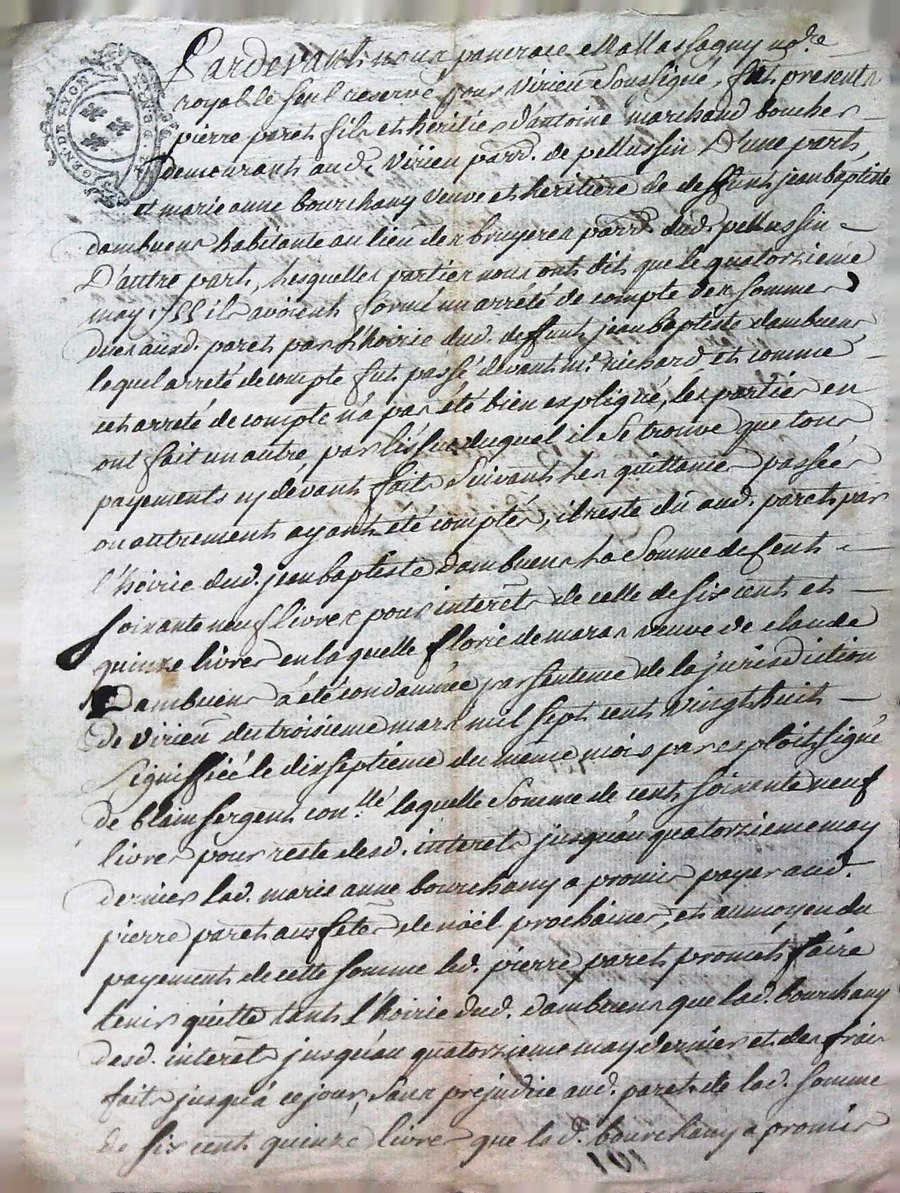 Pardevant nous pancrace Mallassagny no.re
royal le seul reservé pour Virieu soussigné, fut present
pierre paret fils et héritier d'antoine marchand boucher
demeurant aud. Virieu parr. de pellussin D'une part,
et marie anne bourchany veuve et héritière de deffunt jean baptiste
dambuens habitante au lieu des bruyeres parr. dud. pellussin
D'autre part, lesquelles parties nous ont dit que le quatorzieme
may il avoient formé un arrêté de compte des sommes
dues aud. paret par l'hoirie dud. deffunt jean baptiste dambuens
lequel arreté de compte fut passé devant m.e richard, et comme
cet arreté de compte n'a pas été bien expliqué, les parties en
ont fait un autre par duquel il se trouve que tous
payements cy devant faits suivant les quittances passées
ou autrement ayants été comptés, il reste dû aud. paret par
l'hoirie dud. jean baptiste dambuens la somme de cent
soixante neuf livres pour interêts de celle de six cent et
quinze livres en laquelle florie demaras veuve de claude
Dambuens a été condamnée par sentence de la jurisdiction
de Virieu du troisieme mars mil sept cent vingt huit
signiffiée le dixseptieme du même mois par exploit signé
de blain sergent laquelle somme de cent soixante neuf
livres pour reste desd. interets jusqu'au quatorzieme may
dernier lad. marie anne bourchany a promis payer aud.
pierre paret aux fêtes de noël prochaines, et au moyen du
payement de cette somme led. pierre paret promet faire
tenir quitte tant l'hoirie dud. dambuens que lad. bourchany
desd. interets jusqu'au quatorzieme may dernier et des frais
faits jusqu'à ce jour, sans prejudice aud. paret de lad. somme
de six cent quinze livres que lad. bourchany a promis